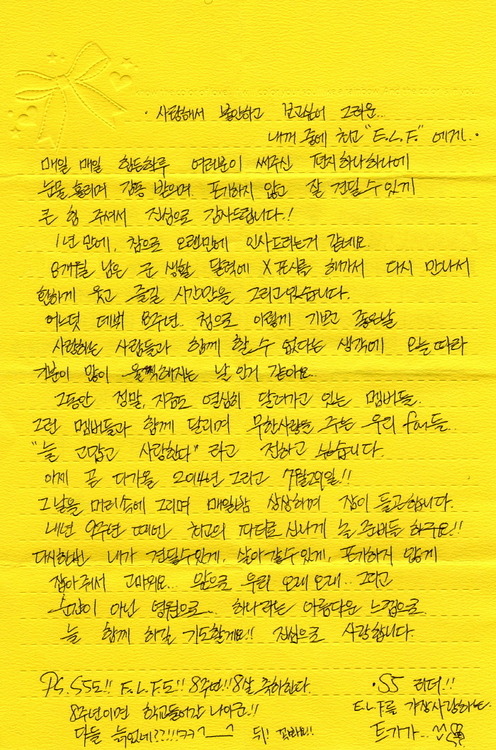 · 사랑해서 불안하고 보고싶어 그리운..
내께 중에 최고 "E.L.F." 에게..
매일 매일 힘든하루 여러분이 써주신 편지하나하나에
눈물 흘리며 감동 받으며 포기하지 않고 잘 견딜수 있게
큰 힘 주셔서 진심으로 감사드립니다.!
1년 만에, 참으로 오랜만에 인사드리는거 같네요
8개월 남은 군 생활 달력에 X표시를 해가며 다시 만나서
환하게 웃고 즐길 시간만을 그리고있습니다.
어느덧 데뷔 8주년 참으로 이렇게 기쁘고 좋은날
사랑하는 사람들과 함께 할수 없다는 생각에 오늘따라
기분이 많이 울쩍해지는 날 인거 같아요.
그동안 정말, 지금도 열심히 달려가고 있는 멤버들.
그런 멤버들과 함께 달리며 무한사랑을 주는 우리 fan들..
"늘 고맙고 사랑한다" 라고 전하고 싶습니다.
이제 곧 다가올 2014년 그리고 7월29일!!
그날을 머리속에 그리며 매일밤 상상하며 잠이 들곤합니다.
내년 9주년 때에는 최고의 파티로 신나게 늘 준비들 하구요!!
다시한번 내가 견딜수있게, 살아갈수있게, 포기하지 않게
잡아줘서 고마워요... 앞으로 우리 오래오래.. 그리고
순간이 아닌 영원으로.. 하나라는 아름다운 느낌으로
늘 함께 하길 기도할게요!! 진심으로 사랑합니다.
PS. SS도!! E.L.F도!! 8주년!! 8살 축하한다.
8주년이면 학교들어갈 나이군!!
다들 늙었네??!!ㅋㅋ^__^ 뒤!
· SS 리더!!
E.L.F를 가장사랑하는
트기가..^^